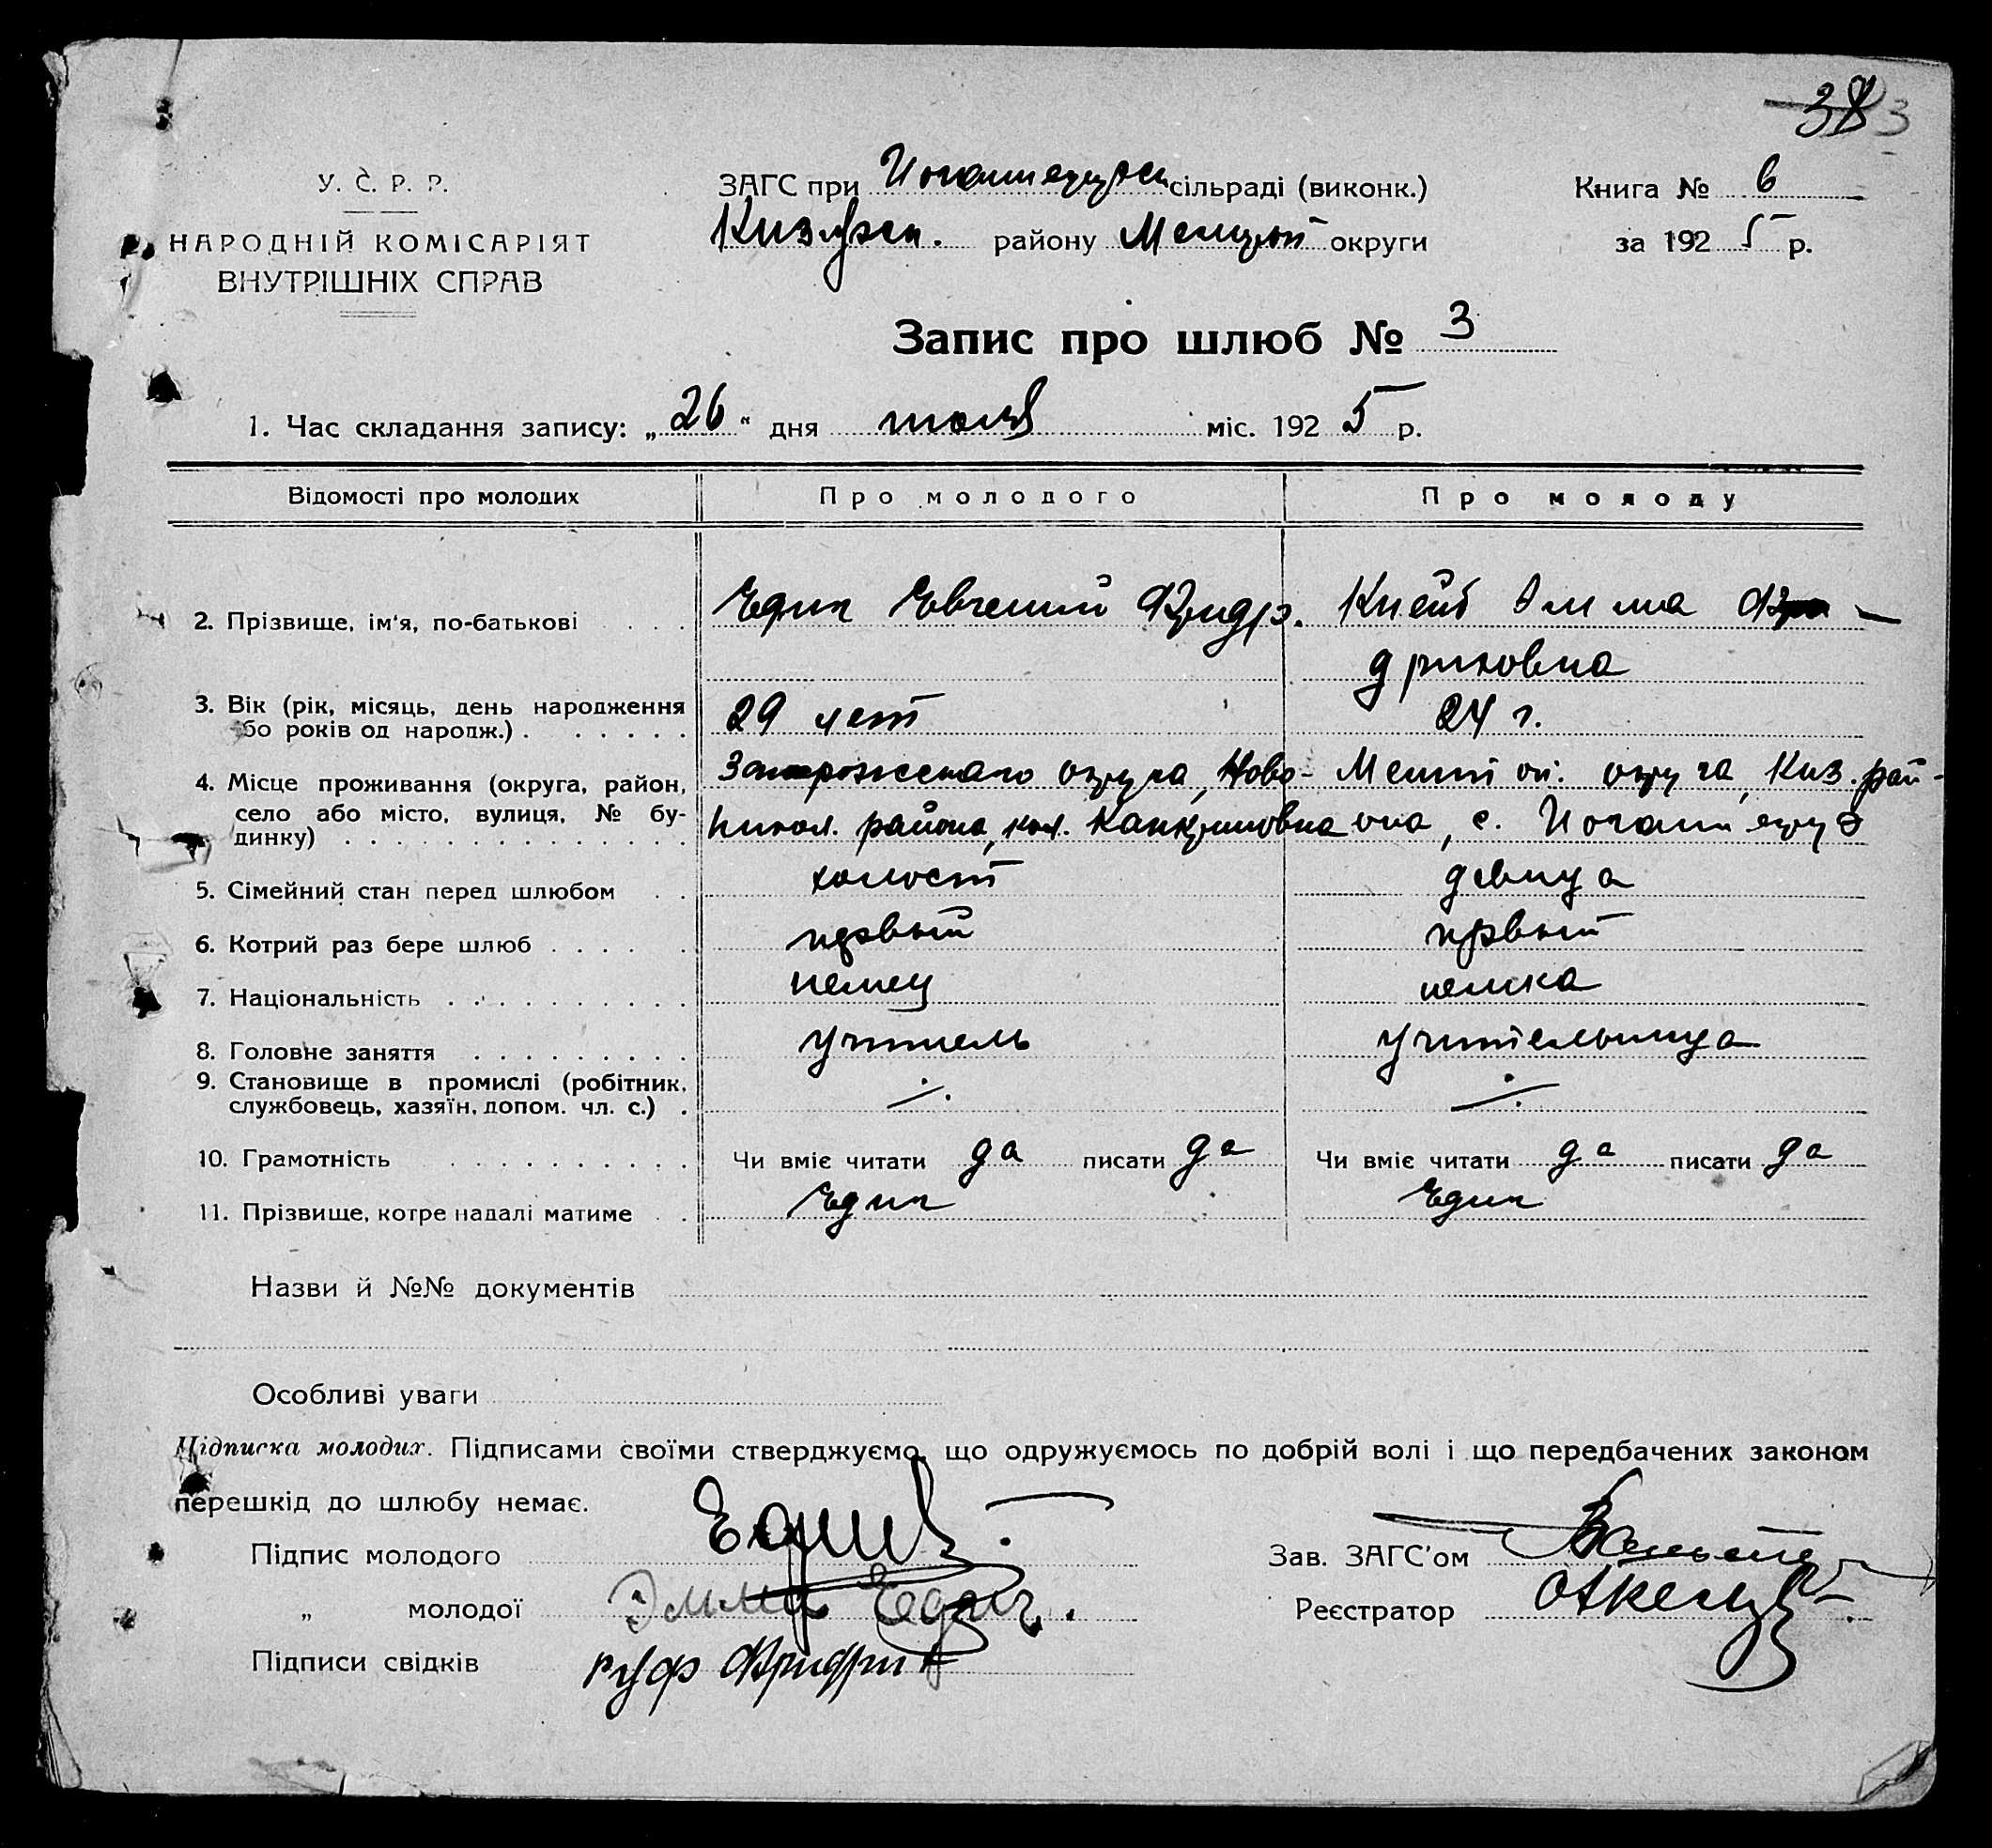 383
У. С. Р. Р.
НАРОДНІЙ КОМІСАРІЯТ
ВНУТРІШНІХ СПРАВ
ЗАГС при Иоганнесрузск сільраді (виконк.)
району округи
Книга № 6
за 1925 р.
Запис про шлюб № 3
1. Час складання запису: „26“ дня июля міс. 1925 р.
Відомості про молодих
Про молодого
Про молоду
2. Прізвище, ім'я, по-батькові . . . .
Едиг Евгений Фридр.
Кнейб Эмма Фри–
дриховна
3. Вік (рік, місяць, день народження
або років од народж.) . . . . . .
29 лет
24 г.
4. Місце проживання (округа, район,
село або місто, вулиця, № бу-
динку) . . . . . . . . . . . . . .
Запорожского округа, Ново-
никол. района, кол. Канкриновка
Мелитоп. округа, Киз. рай-
она, с. Иоганнесру
5. Сімейний стан перед шлюбом . .
холост
девица
6. Котрий раз бере шлюб . . . .
первый
первый
7. Національність . . . . . . . . .
немец
немка
8. Головне заняття . . . . . . . . .
учитель
учительница
9. Становище в промислі (робітник,
службовець, хазяїн, допом. чл. с.) .
∙/.
∙/.
10. Грамотність . . . . . . . . . .
Чи вміє читати да писати да
Чи вміє читати да писати да
11. Прізвище, котре надалі матиме . .
Едиг
Едиг
Назви й №№ документів
Особливі уваги
Підписка молодих. Підписами своїми стверджуємо, що одружуємось по добрій волі і що передбачених законом
перешкід до шлюбу немає.
Підпис молодого Едиг
„ молодої Эмма Едиг.
Підписи свідків Руф Фридрих
Зав. ЗАГС'ом
Реєстратор